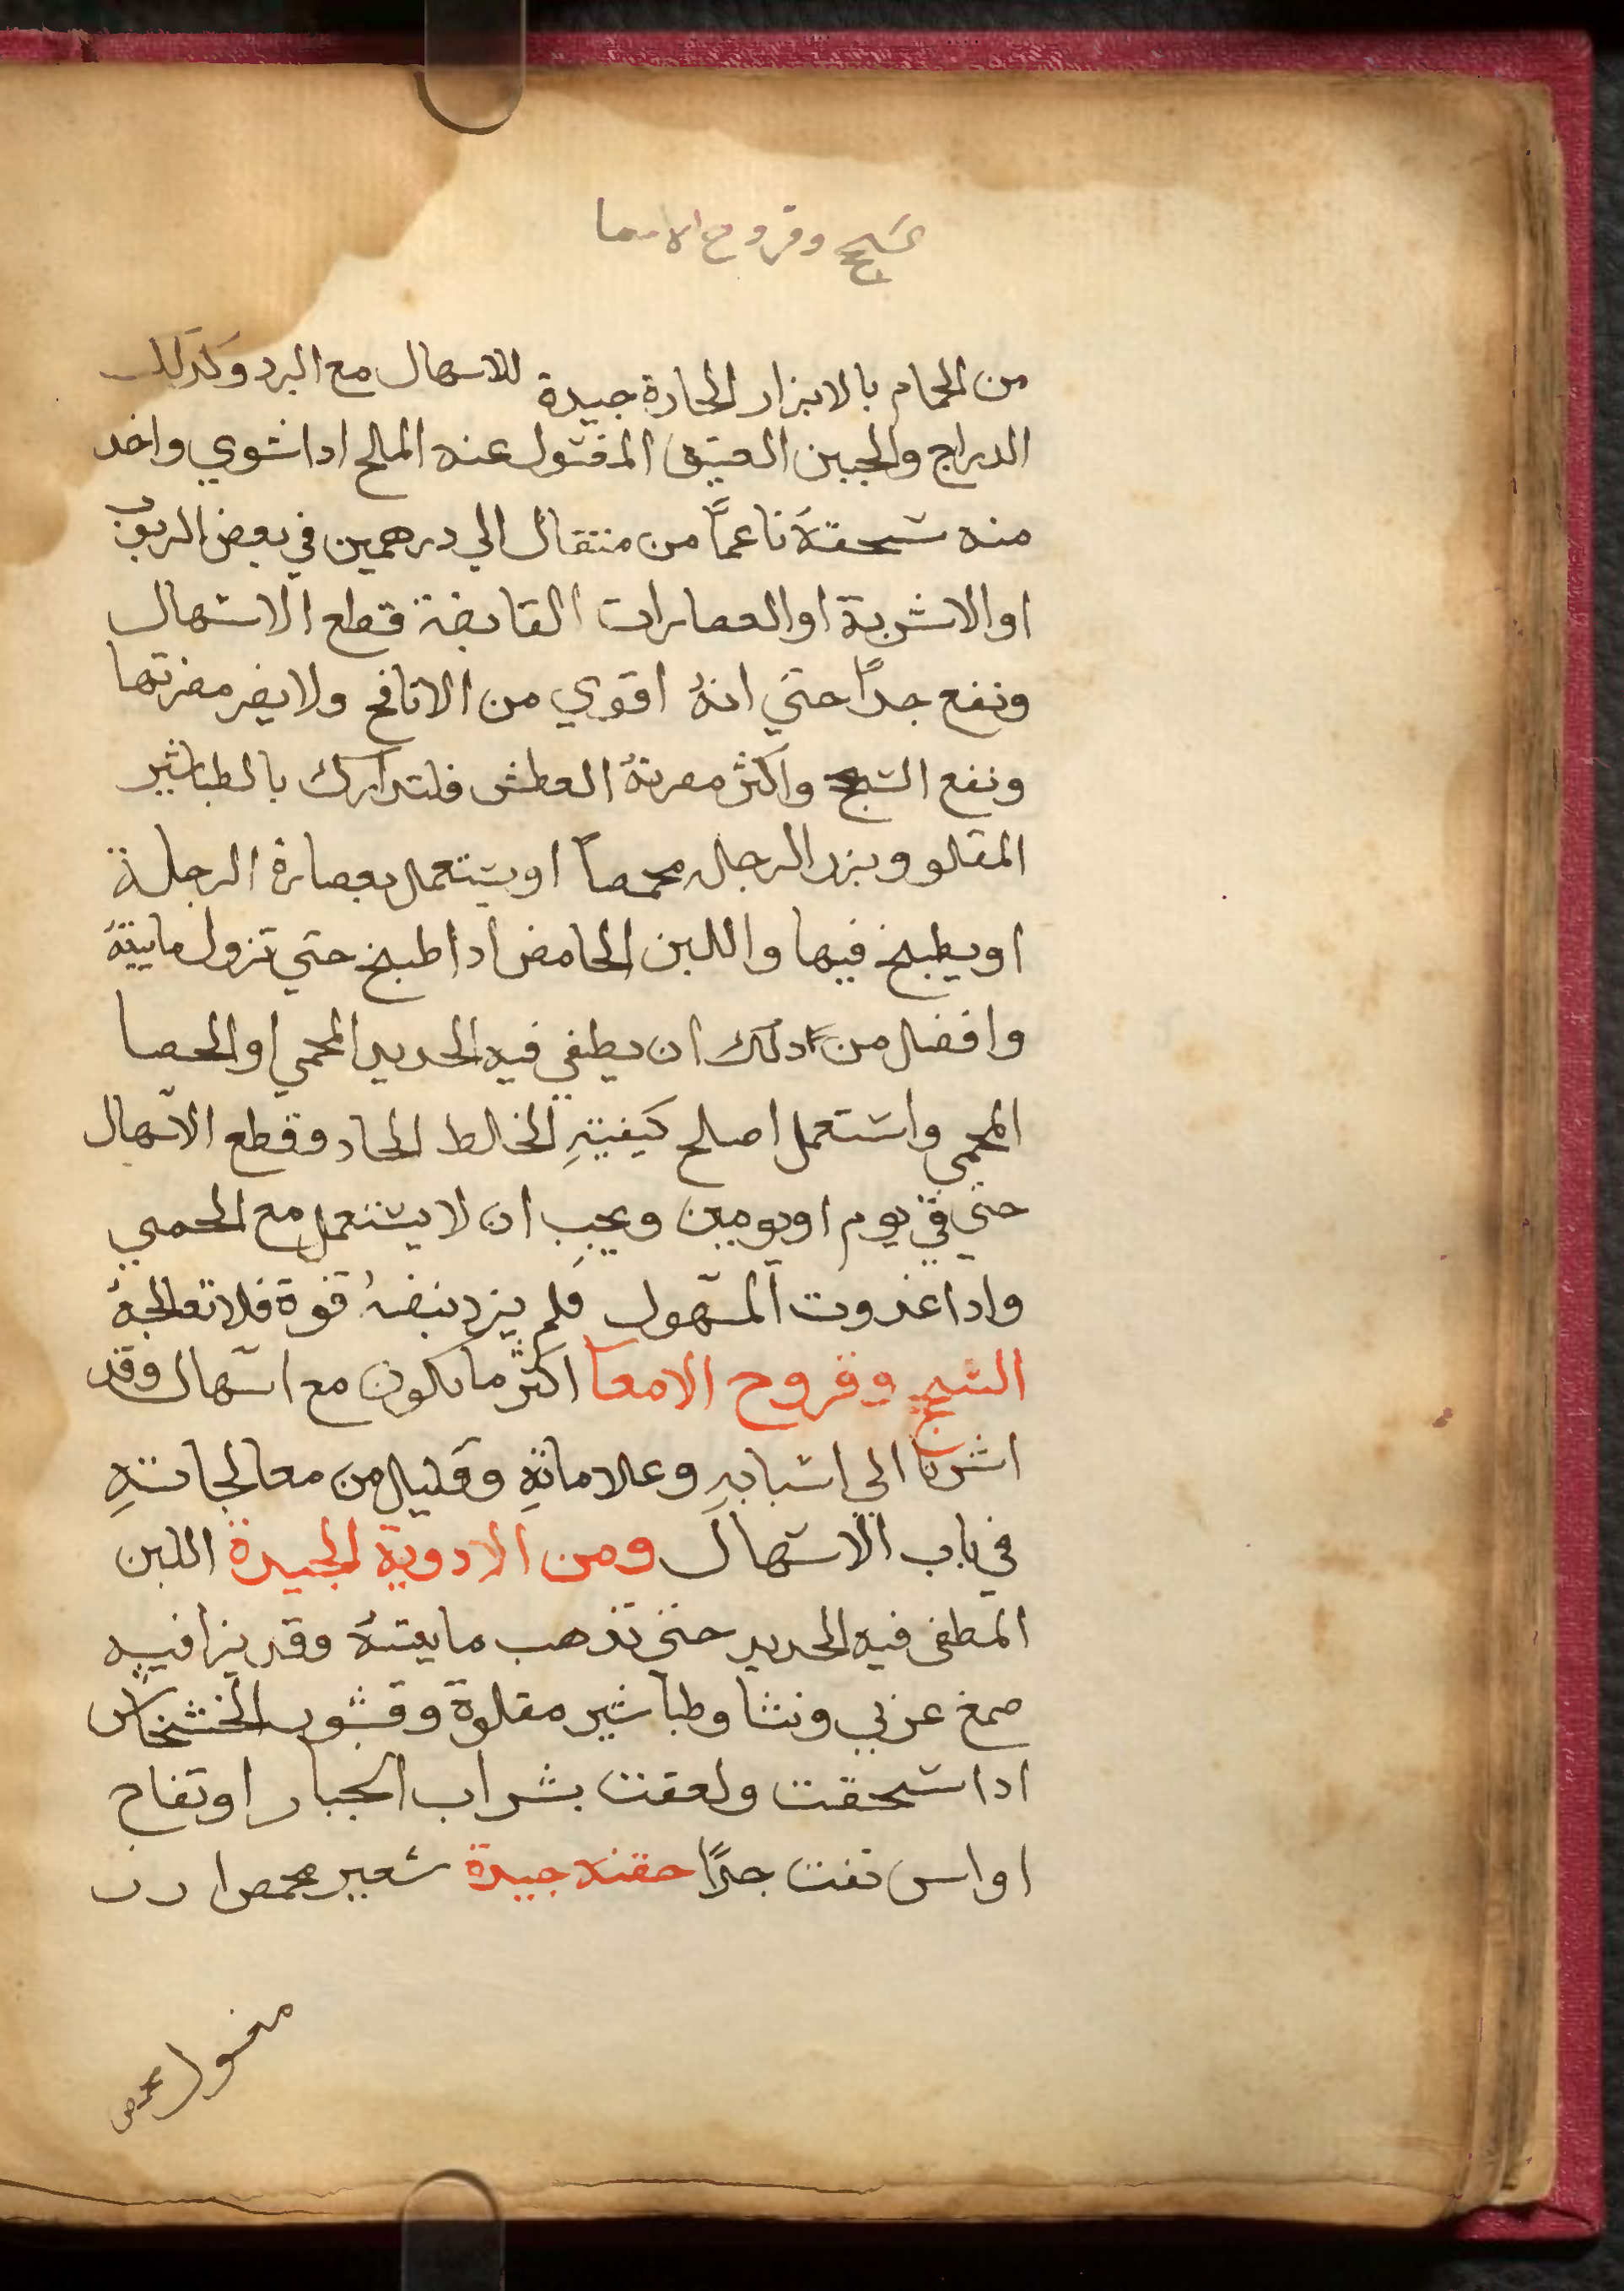 سحج وقروح الامعا
من الحمام بالابزار الحارة جيدة للاسهال مع البرد وكذلك
الدراج والجبن العتيق المغسول عنه الملح ادا شوي واخد
منه سحقهُ ناعماً من متقال الي درهمين في بعض الربوب
او الاشربة او العصارات القابضة قطع الاسهال
ونفع جداً حتي انهُ اقوي من الانافح ولا يضر مضرتها
ونفع السحج واكثر مضرتهُ العطش فلتدارك بالطباشير
المقلو وبزر الرجله محمصاً او يستعمل بعصارة الرجلة
او يطبخ فيها واللبن الحامض ادا طبخ حتي تزول ماييتهُ
وافضل من دلك ان يطفي فيه الحديد المحمي او الحصا
المحمي واستعمل اصلح كيفيتهِ الخالط الحاد وقطع الاسهال
حتي في يوم او يومين ويجب ان لا يستعمل مع الحمي
وادا غدوت المسهول فلم يزد نبضهُ قوة فلا تعالجهُ
السحج وقروح الامعا اكثر ما يكون مع اسهال وقد
اشرنا الي اسبابهِ وعلاماتهِ وقليل من معالجاتهِ
في باب الاسهال ومن الادوية الجيدة اللبن
المطفي فيه الحديد حتي تذهب ماييتهُ وقد يزا فيه
صمغ عربي ونشا وطباشير مقلوة وقشور الخشخاش
ادا سحقت ولعقت بشراب الجبار او تفاح
او اس نفت جداً حقنه جيدة شعير محمص ارز
مغسول محمص